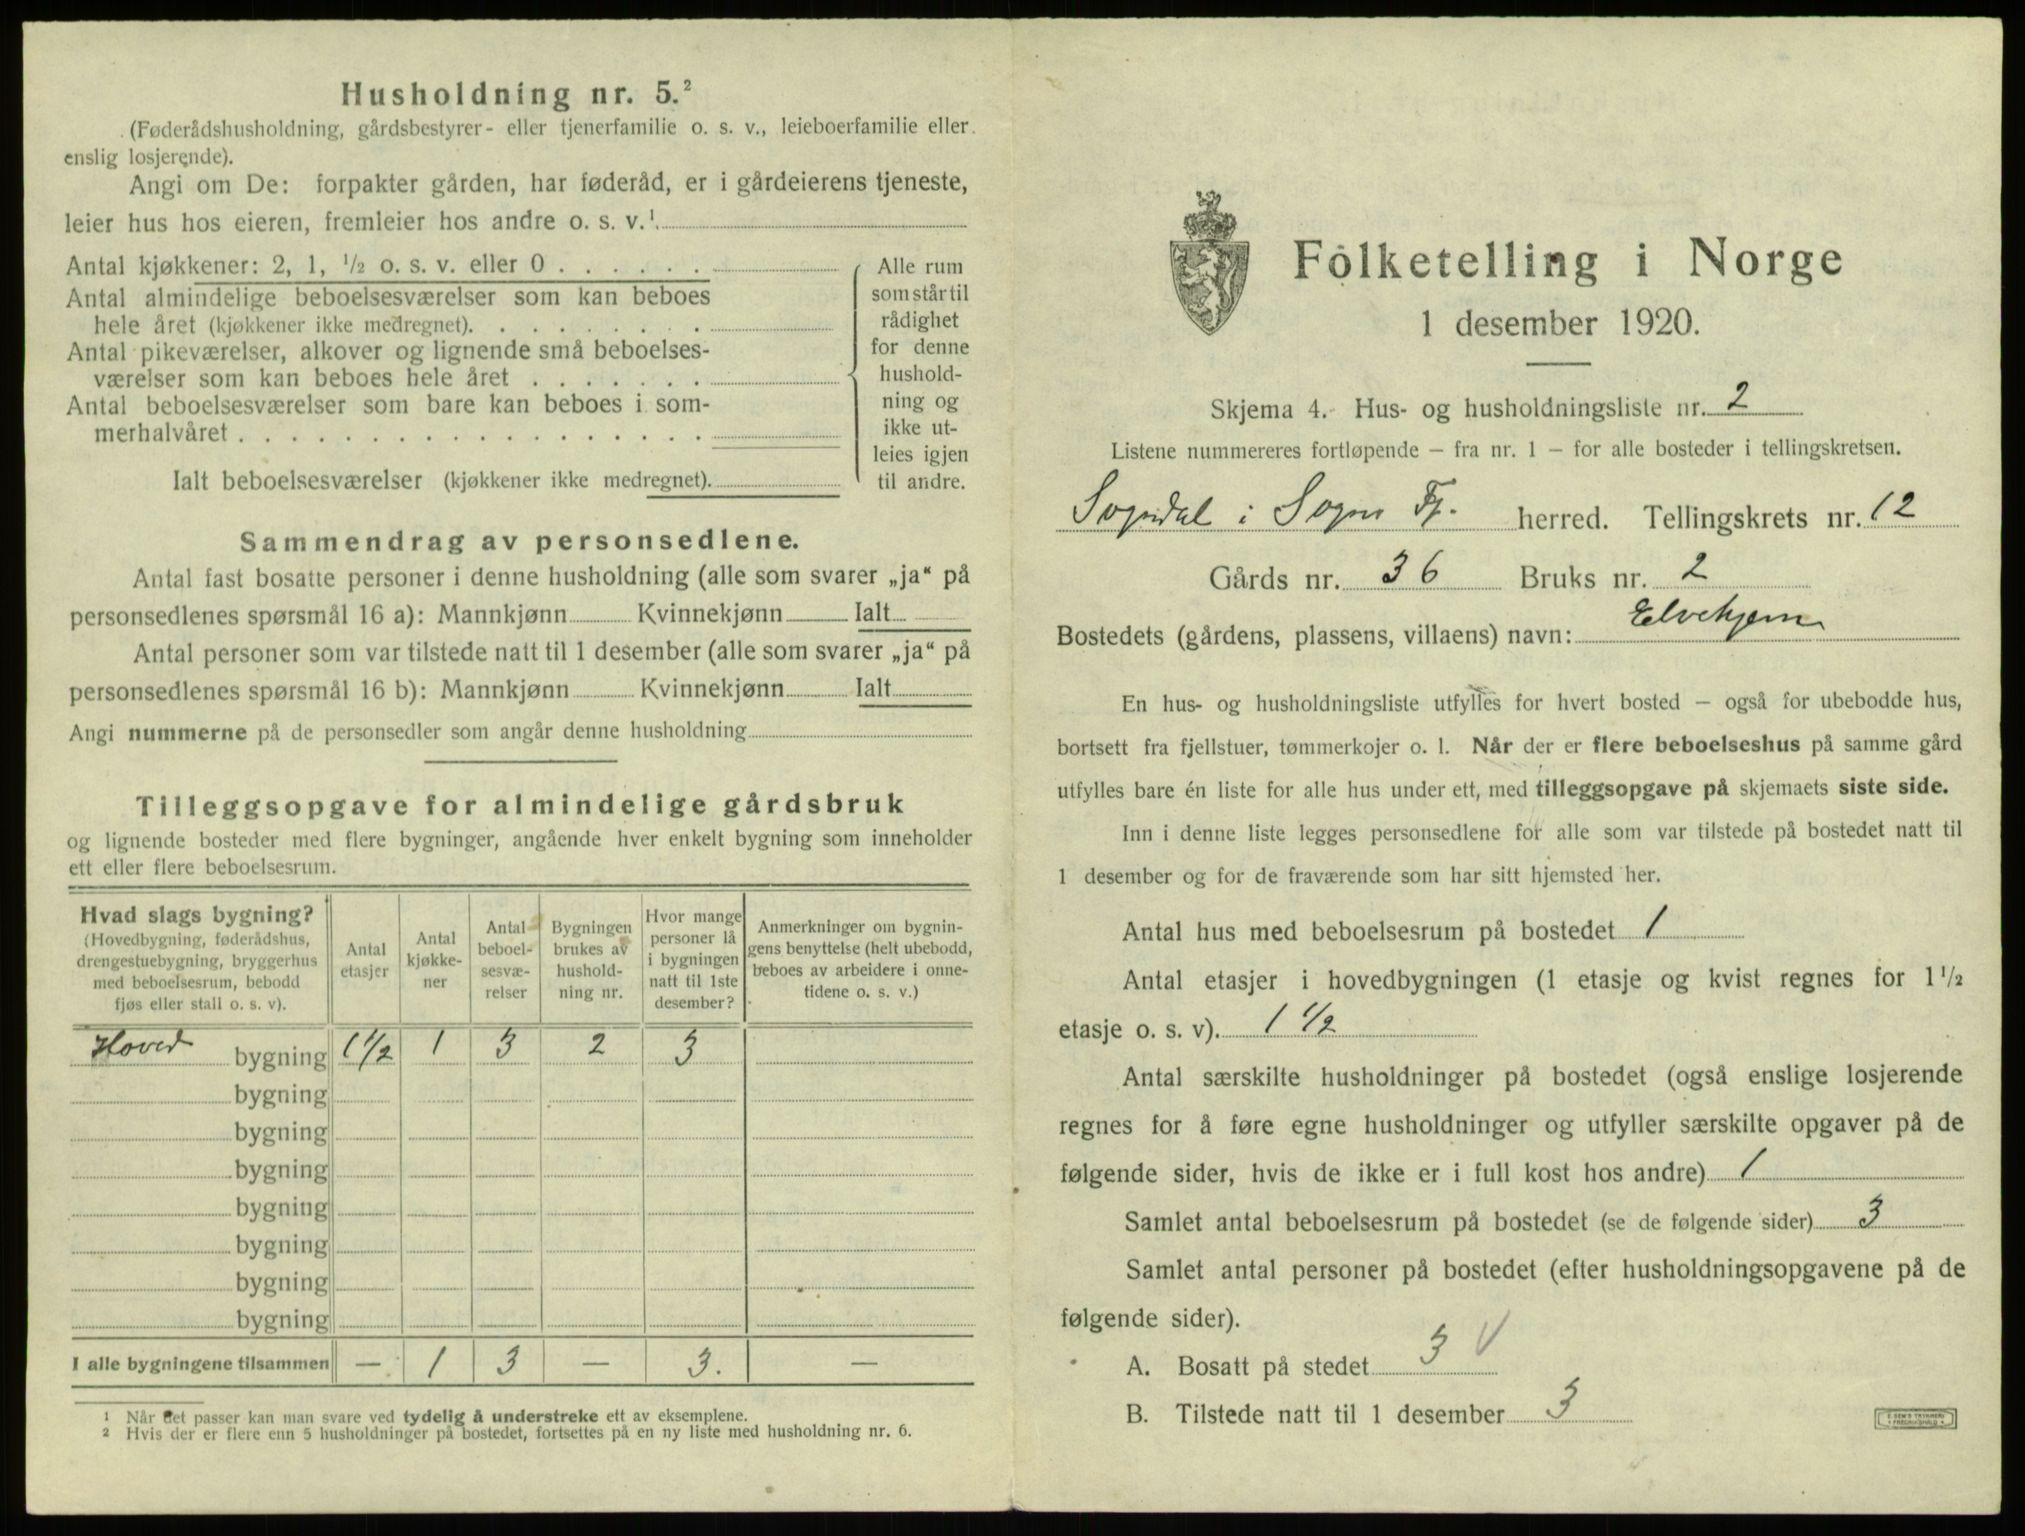 Husholdning nr. 5.²
(Føderådshusholdning, gårdsbestyrer- eller tjenerfamilie o. s. v., leieboerfamilie eller
enslig losjerende).
Angi om De: forpakter gården, har føderåd, er i gårdeierens tjeneste,
leier hus hos eieren, fremleier hos andre o. s. v.¹
Antal kjøkkener: 2, 1, ½ o. s. v. eller 0
Antal almindelige beboelsesværelser som kan beboes
hele året (kjøkkener ikke medregnet).
Antal pikeværelser, alkover og lignende små beboelses-
værelser som kan beboes hele året
Antal beboelsesværelser som bare kan beboes i som-
merhalvåret
Ialt beboelsesværelser (kjøkkener ikke medregnet).
Alle rum
som står til
rådighet
for denne
hushold-
ning og
ikke ut-
leies igjen
til andre.
Sammendrag av personsedlene.
Antal fast bosatte personer i denne husholdning (alle som svarer „ja“ på
personsedlenes spørsmål 16 a): Mannkjønn Kvinnekjønn Ialt
Antal personer som var tilstede natt til 1 desember (alle som svarer „ja“ på
personsedlenes spørsmål 16 b): Mannkjønn Kvinnekjønn Ialt
Angi nummerne på de personsedler som angår denne husholdning
Tilleggsopgave for almindelige gårdsbruk
og lignende bosteder med flere bygninger, angående hver enkelt bygning som inneholder
ett eller flere beboelsesrum.
Hvad slags bygning?
(Hovedbygning, føderådshus,
drengestuebygning, bryggerhus
med beboelsesrum, bebodd
fjøs eller stall o. s. v).
Antal
etasjer
Antal
kjøkke-
ner
Antal
beboel-
sesvæ-
relser
Bygningen
brukes av
hushold-
ning nr.
Hvor mange
personer lå
i bygningen
natt til 1ste
desember?
Anmerkninger om bygnin-
gens benyttelse (helt ubebodd,
beboes av arbeidere i onne-
tidene o. s. v.)
Hoved bygning 1½ 1 3 2 3
bygning
bygning
bygning
bygning
bygning
bygning
bygning
I alle bygningene tilsammen — 1 3 — 3. —
¹ Når det passer kan man svare ved tydelig å understreke ett av eksemplene.
² Hvis der er flere enn 5 husholdninger på bostedet, fortsettes på en ny liste med husholdning nr. 6.
Folketelling i Norge
1 desember 1920.
Skjema 4. Hus- og husholdningsliste nr. 2
Listene nummereres fortløpende – fra nr. 1 – for alle bosteder i tellingskretsen.
Sogndal i Sogn Fj. herred. Tellingskrets nr. 12
Gårds nr. 36 Bruks nr. 2
Bostedets (gårdens, plassens, villaens) navn: Elvekjem
En hus- og husholdningsliste utfylles for hvert bosted – også for ubebodde hus,
bortsett fra fjellstuer, tømmerkojer o. l. Når der er flere beboelseshus på samme gård
utfylles bare én liste for alle hus under ett, med tilleggsopgave på skjemaets siste side.
Inn i denne liste legges personsedlene for alle som var tilstede på bostedet natt til
1 desember og for de fraværende som har sitt hjemsted her.
Antal hus med beboelsesrum på bostedet 1
Antal etasjer i hovedbygningen (1 etasje og kvist regnes for 1½
etasje o. s. v). 1½
Antal særskilte husholdninger på bostedet (også enslige losjerende
regnes for å føre egne husholdninger og utfyller særskilte opgaver på de
følgende sider, hvis de ikke er i full kost hos andre) 1
Samlet antal beboelsesrum på bostedet (se de følgende sider) 3
Samlet antal personer på bostedet (efter husholdningsopgavene på de
følgende sider).
A. Bosatt på stedet 3 V
B. Tilstede natt til 1 desember 3